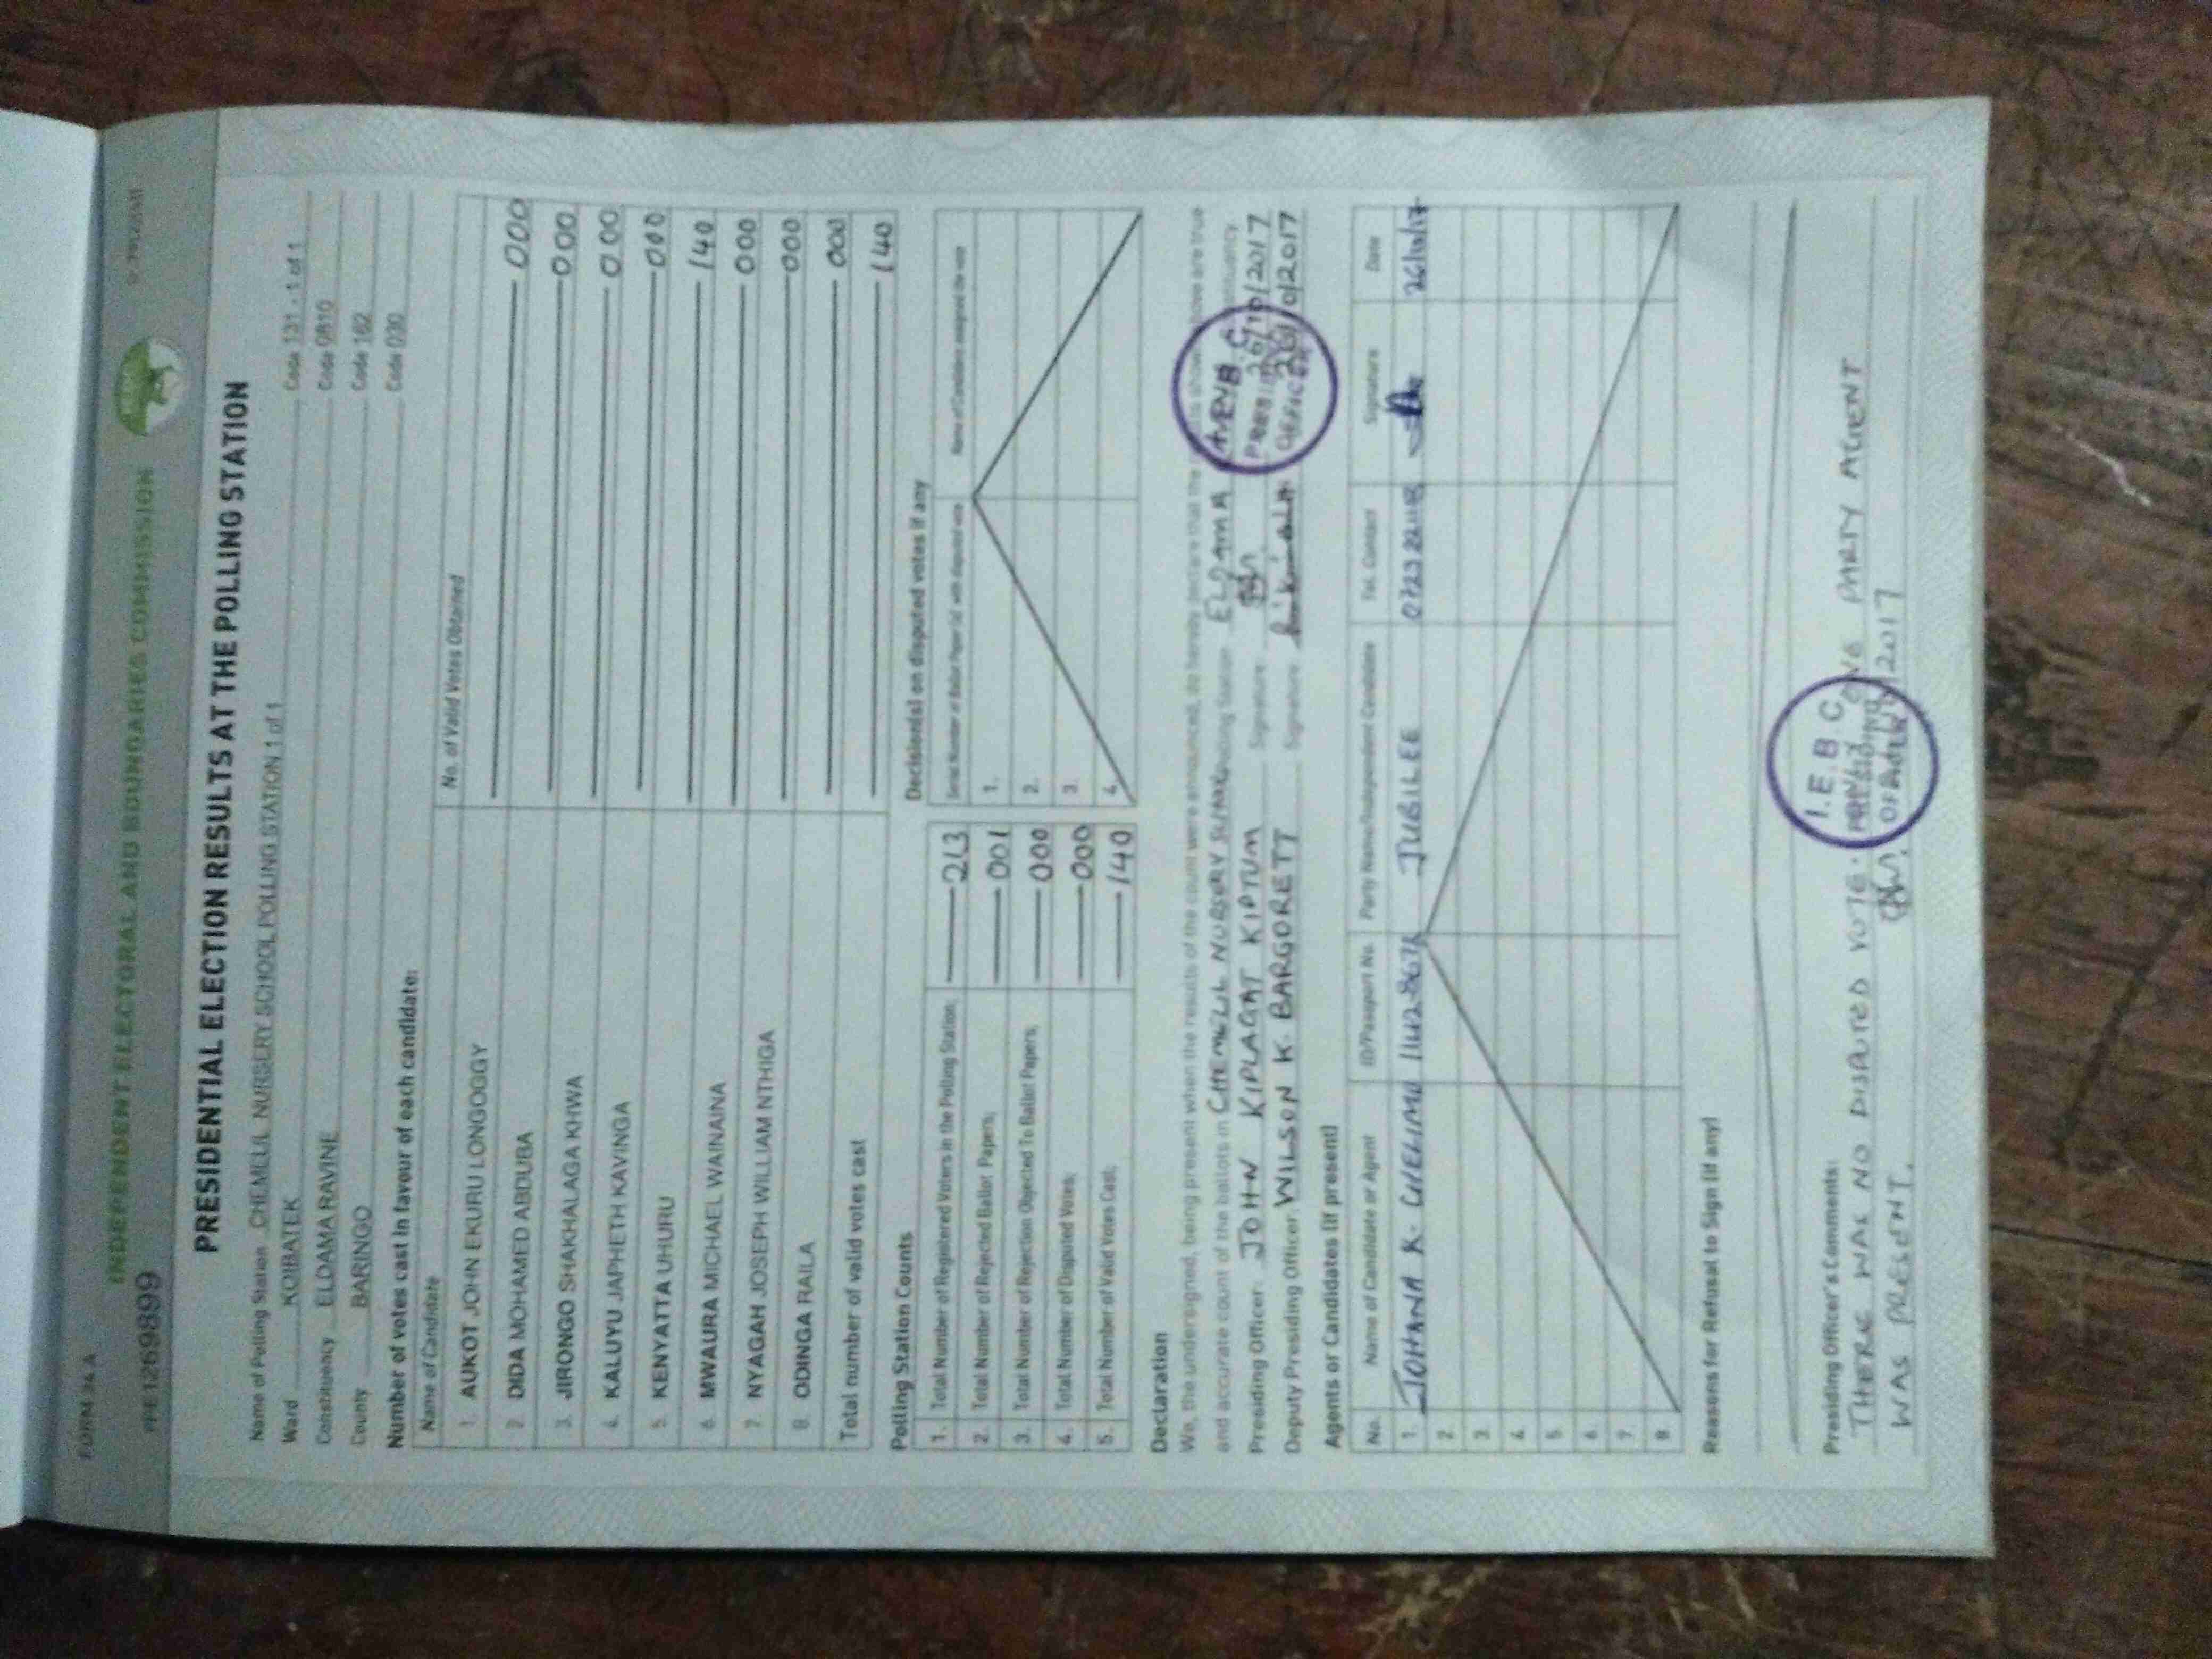 FORM 34 A
INDEPENDENT ELECTORAL AND BOUNDARIES COMMISSION
PPE 1269899
PRESIDENTIAL ELECTION RESULTS AT THE POLLING STATION
Name of Polling Station CHEMELIL NURSERY SCHOOL POLLING STATION 1 of 1 Code 131 - 1 of 1
Ward KOIBATEK Code 0810
Constituency ELDAMA RAVINE Code 162
County BARINGO Code 030
Number of votes cast in favour of each candidate:
Name of Candidate No. of Valid Votes Obtained
1 AUKOT JOHN EKURU LONGOGGY 000
2 DIDA MOHAMED ABDUBA 000
3. JIRONGO SHAKHALAGA KHWA 000
4 KALUYU JAPHETH KAVINGA 000
5 KENYATTA UHURU 140
6 MWAURA MICHAEL WAINAINA 000
7 NYAGAH JOSEPH WILLIAM NTHIGA 000
8 ODINGA RAILA 000
Total number of valid votes cast 140
Polling Station Counts
1. Total Number of Registered Voters in the Polling Station: 213
2. Total Number of Rejected Ballot Papers: 001
3. Total Number of Rejection Objected To Ballot Papers: 000
4. Total Number of Disputed Votes: 000
5. Total Number of Valid Votes Cast: 140
Decision(s) on disputed votes if any
Serial Number of Ballot Paper(s) with disputed vote Name of Candidate assigned the vote
1.
2.
3.
4.
Declaration
We, the undersigned, being present when the results of the count were announced, do hereby declare that the results shown above are true
and accurate count of the ballots in CHEMELIL NURSERY Polling Station ELDAMA Constituency
Presiding Officer: JOHN KIPLAGAT KIPTUM Signature 26/10/2017
Deputy Presiding Officer WILSON K. BARGORETT Signature 26/10/2017
PRESIDING OFFICER
Agents or Candidates (if present)
No. Name of Candidate or Agent ID/Passport No. Party Name/Independent Candidate Tel. Contact Signature Date
1. JOHANA K. JUBILEE 26/10/17
2.
3.
4.
5.
6.
7.
8.
Reasons for Refusal to Sign (if any)
Presiding Officer's Comments:
THERE WAS NO DISPUTED VOTE. ONE PARTY AGENT
WAS PRESENT.
I.E.B.C
PRESIDING
OFFICER